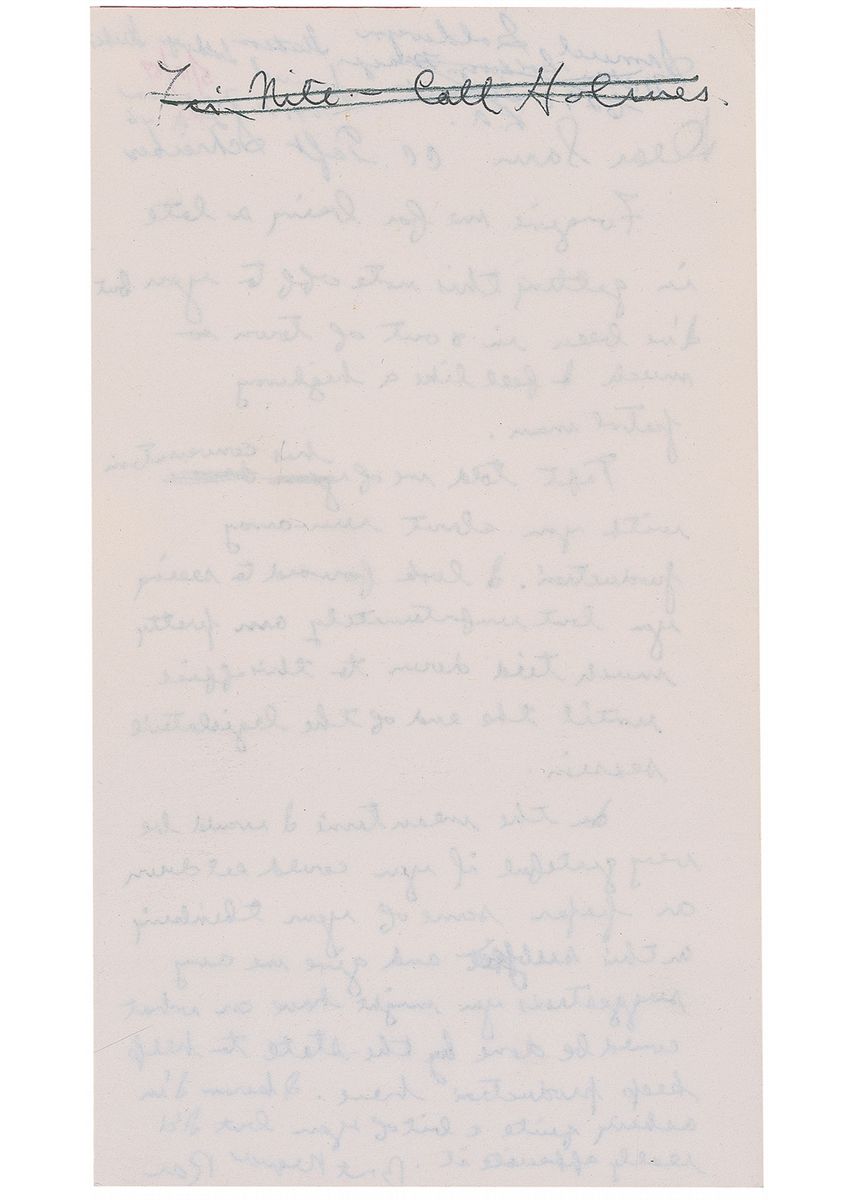 Fri Nite. – Call Holmes.
Samuel Goldwyn
Dear Sam cc Taft Schreiber
Forgive me for being a late
in getting this note off to you but
I've been in & out of town so
much I feel like a highway
patrol man.
Taft told me of his conversation
with you about runaway
production. I look forward to seeing
you but unfortunately am pretty
much tied down to this office
until the end of the legislative
session
In the meantime I would be
very grateful if you could set down
on paper some of your thinking
on this subject and give me any
suggestions you might have on what
could be done by the state to help
keep production "home". I know I'm
asking quite a bit of you but I'd
really appreciate it. Best Regards Ron